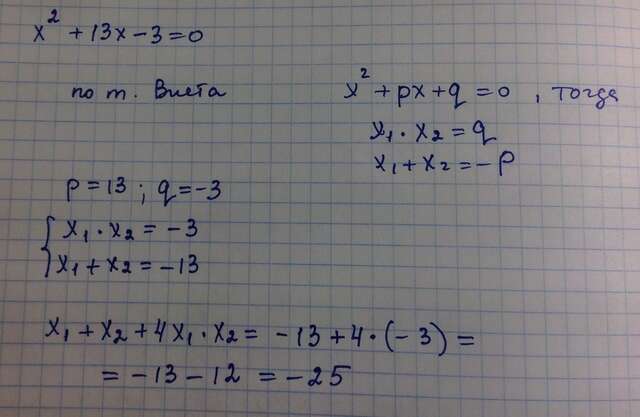 x² + 13x - 3 = 0
по т. Виета
x² + px + q = 0, тогда
x₁ · x₂ = q
x₁ + x₂ = - p
p = 13 ; q = -3
{ x₁ · x₂ = -3
x₁ + x₂ = -13
x₁ + x₂ + 4x₁ · x₂ = -13 + 4 · (-3) =
= -13 - 12 = -25